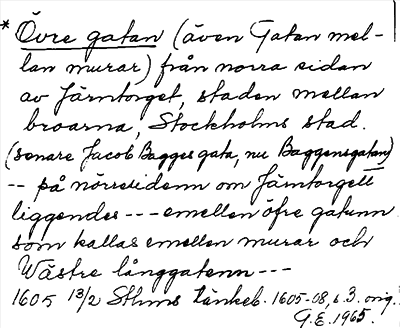 * Övre gatan (även Gatan mel-
lan murar) från norra sidan
av Järntorget, staden mellan
broarna, Stockholms stad.
(senare Jacob Bagges gata, nu Baggensgatan)
-- på nörresidenn om Järntorgett
liggendes --- emellen öfre gatunn
som kallas emellen murar och
Wästre långgatenn ---
1605 13/2 Sthms tänkeb. 1605-08, s. 3. orig.
G.E. 1965.